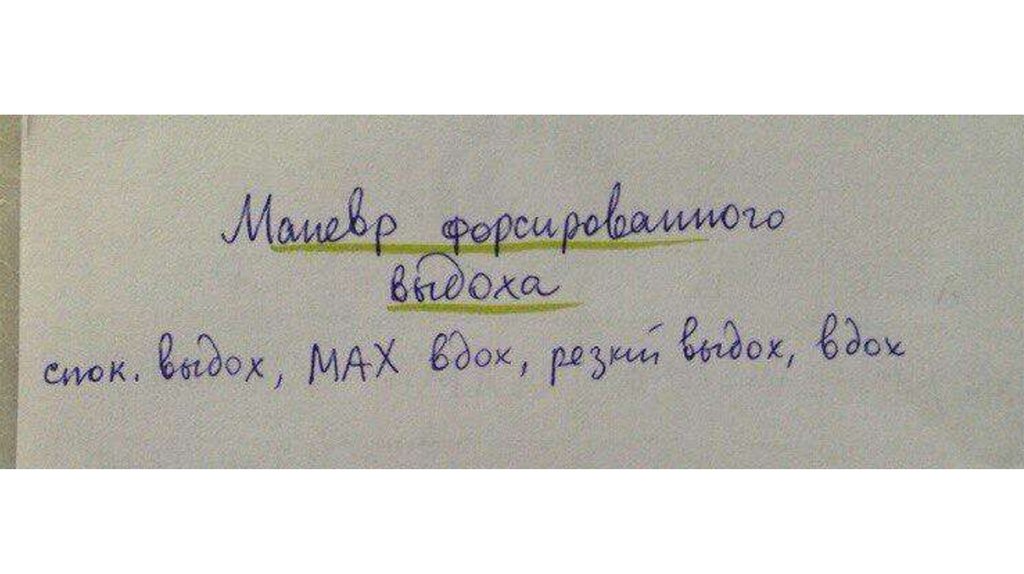 Маневр форсированного
выдоха
спок. выдох, MAX вдох, резкий выдох, вдох